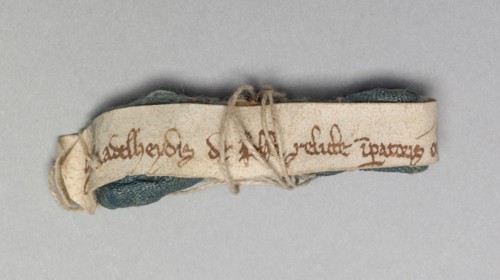 adelheydis de relicte īp̄atoris